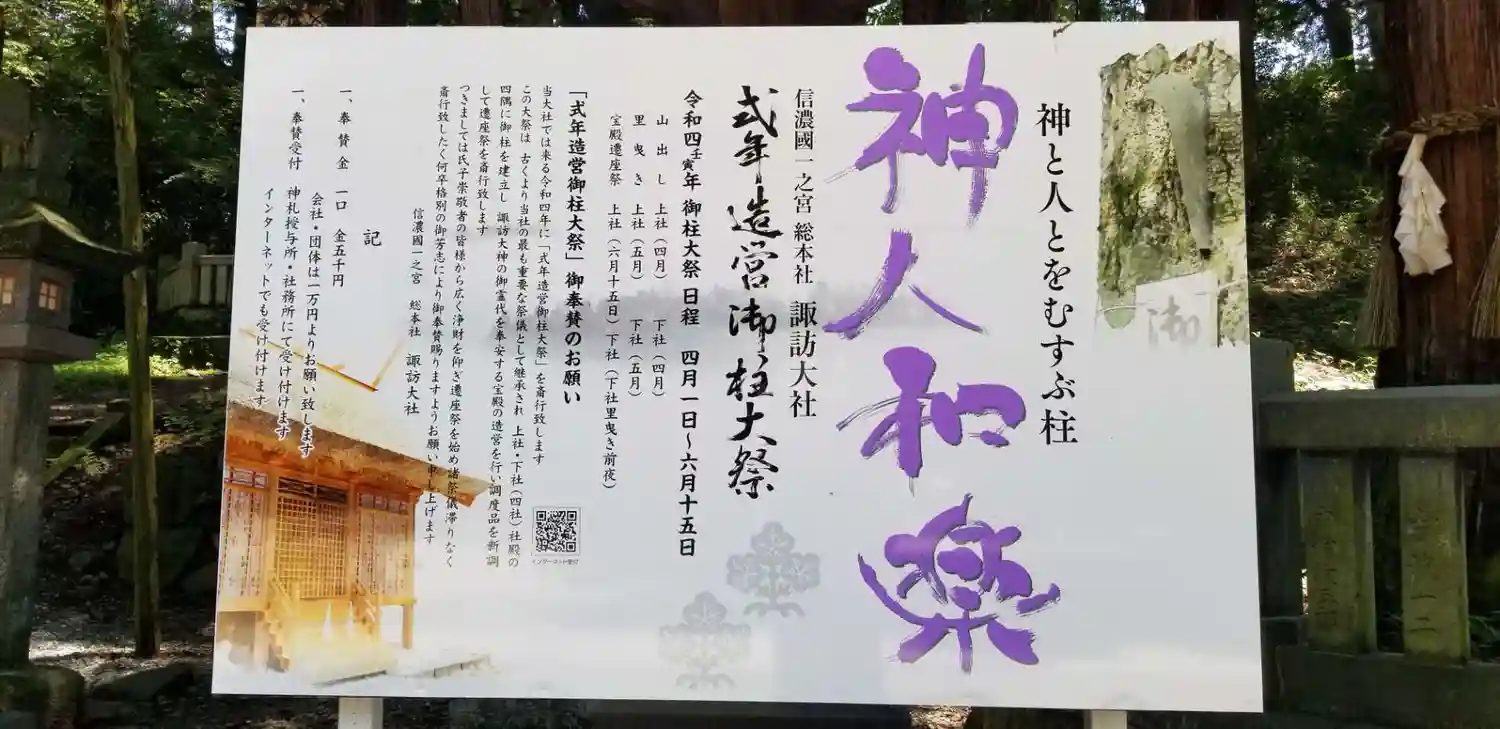 神と人とをむすぶ柱
神人和楽
信濃國一之宮 総本社 諏訪大社
式年造営御柱大祭
令和四壬寅年 御柱大祭 日程 四月一日～六月十五日
山出し 上社(四月) 下社(四月)
里曳き 上社(五月) 下社(五月)
宝殿遷座祭 上社(六月十五日) 下社(下社里曳き前夜)
「式年造営御柱大祭」御奉賛のお願い
当大社では来る令和四年に「式年造営御柱大祭」を斎行致します
この大祭は 古くより当社の最も重要な祭儀として継承され 上社・下社(四社)社殿の
四隅に御柱を建立し 諏訪大神の御霊代を奉安する宝殿の造営を行い調度品を新調
して遷座祭を斎行致します
つきましては氏子崇敬者の皆様から広く浄財を仰ぎ遷座祭を始め諸祭儀滞りなく
斎行致したく何卒格別の御芳志により御奉賛賜りますようお願い申し上げます
信濃國一之宮 総本社 諏訪大社
記
一、奉賛金 一口 金五千円
会社・団体は一万円よりお願い致します
一、奉賛受付 神札授与所・社務所にて受け付けます
インターネットでも受け付けます
インターネット受付
御